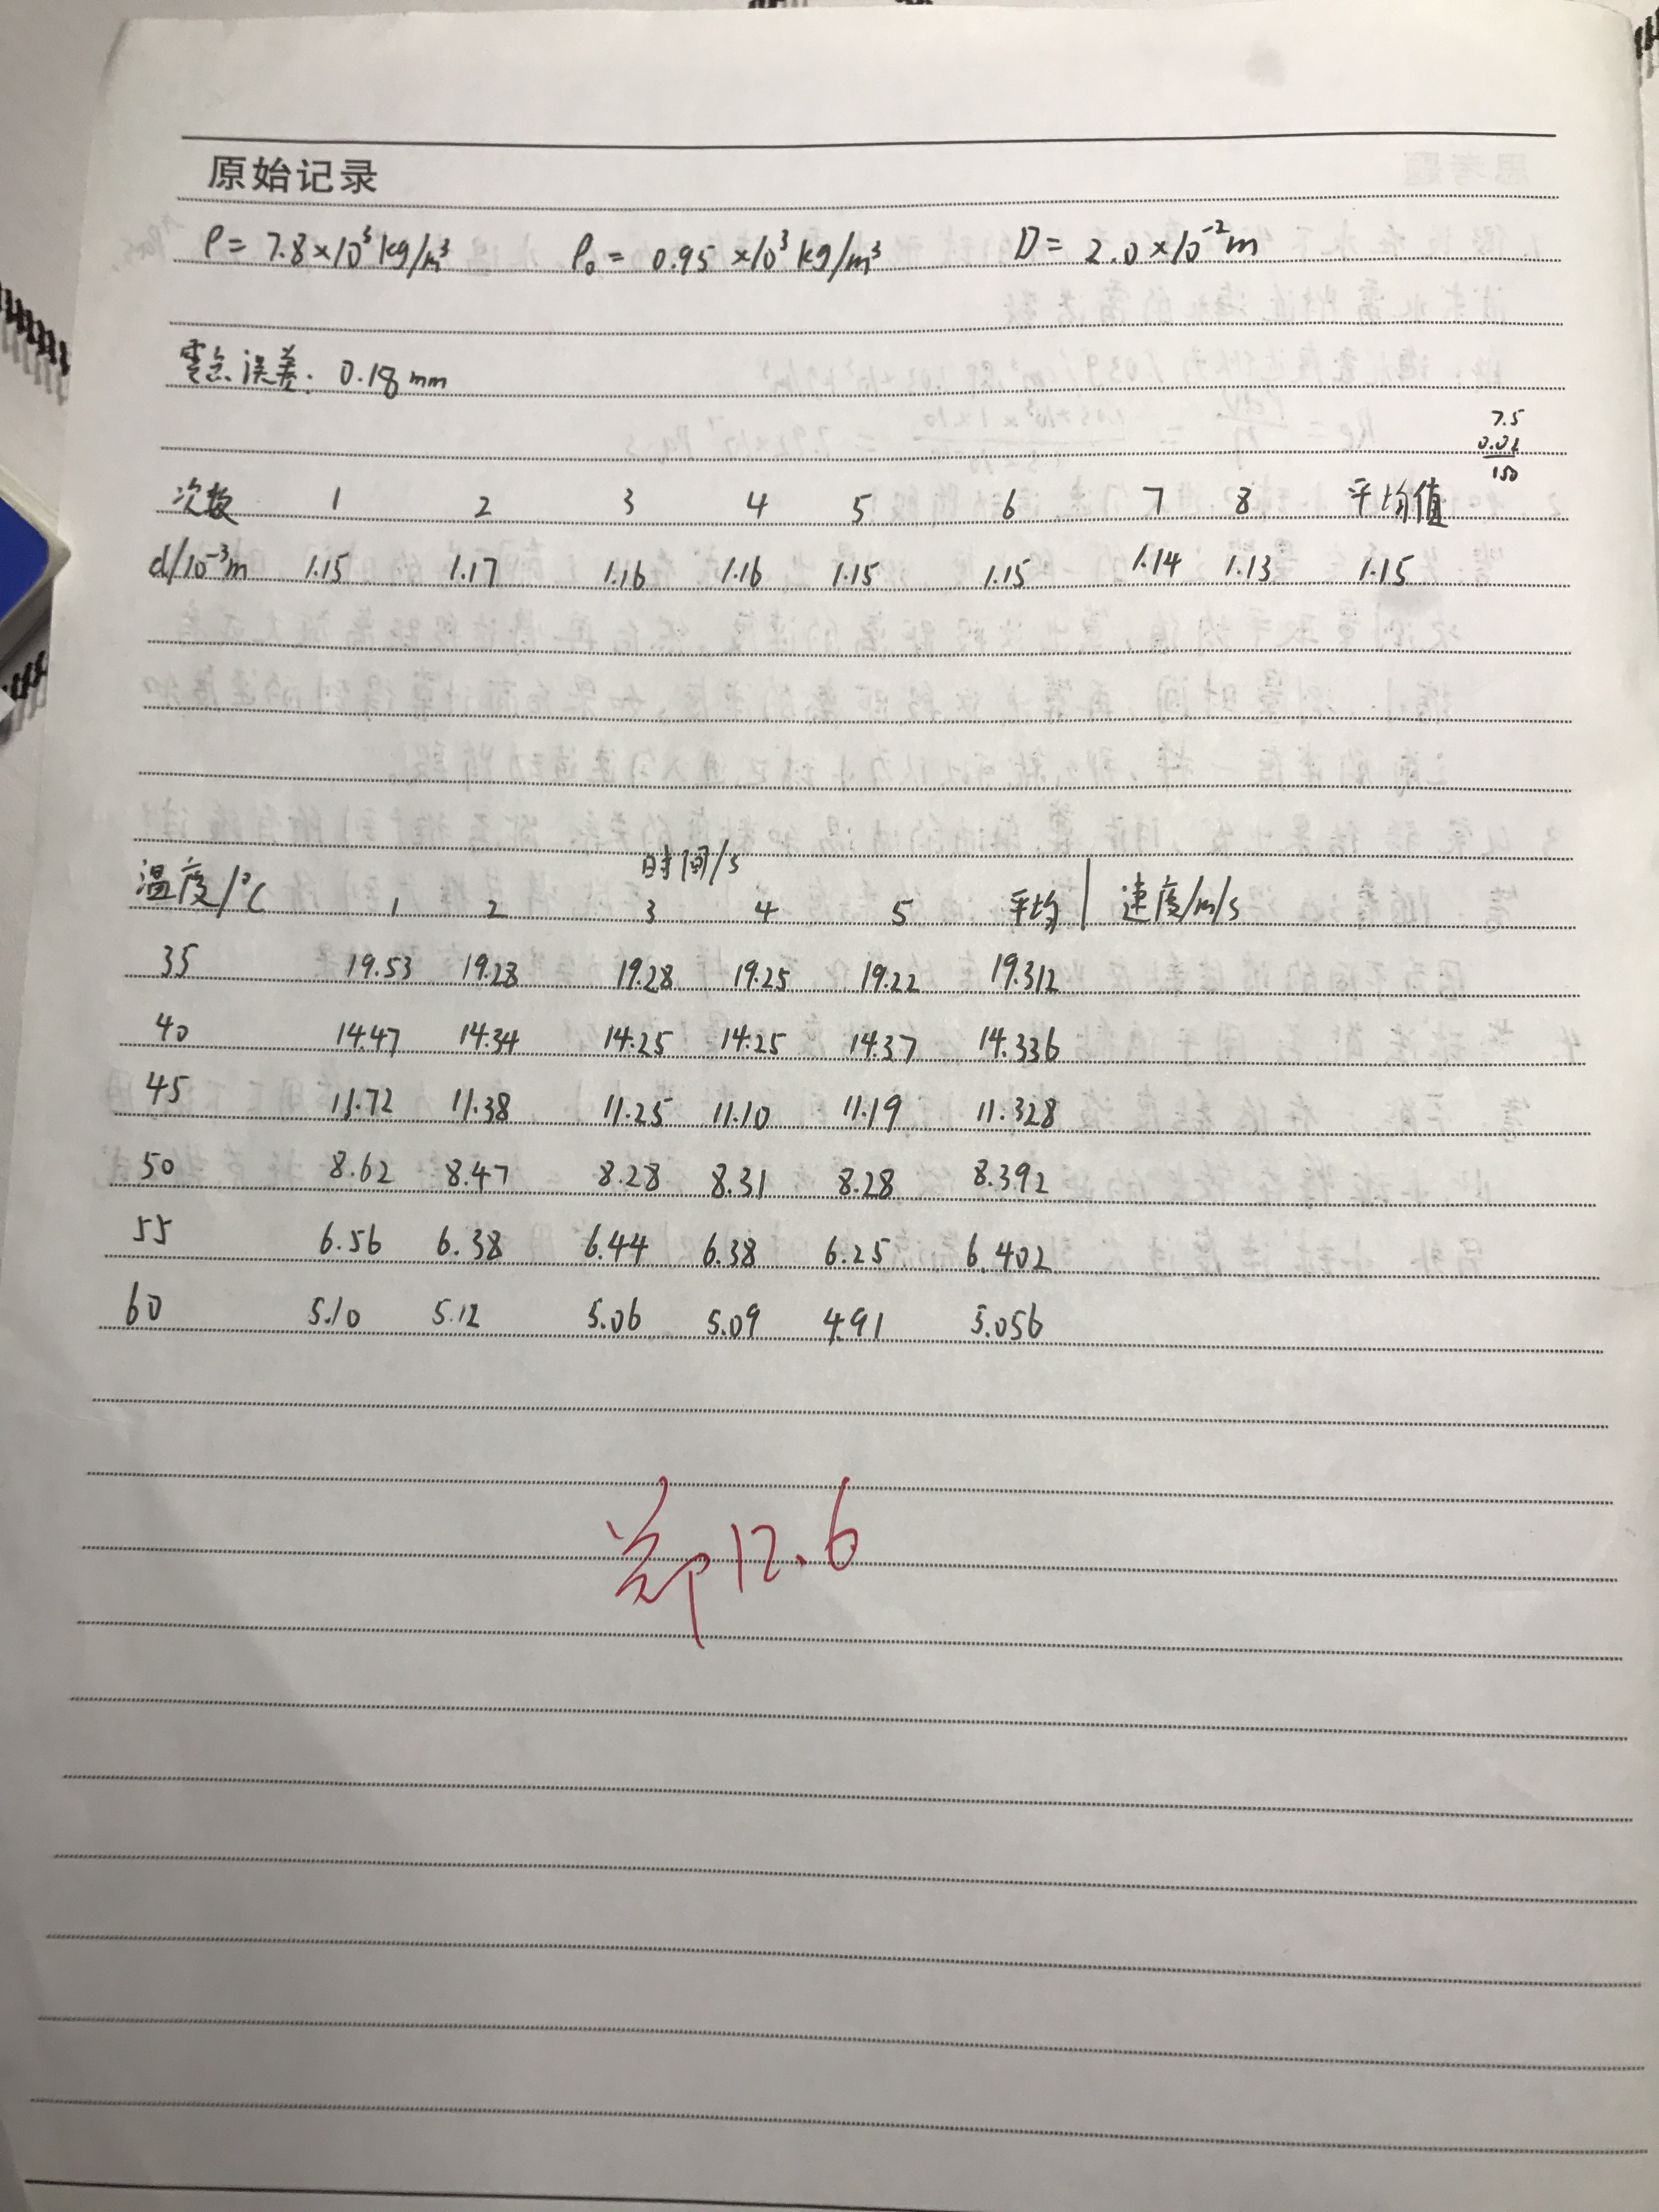 原始记录
ρ = 7.8×10³ kg/m³ ρ₀ = 0.95 ×10³ kg/m³ D = 2.0×10⁻² m
零点误差: 0.18mm
7.5
0.02
150
次数 1 2 3 4 5 6 7 8 平均值
d/10⁻³m 1.15 1.17 1.16 1.16 1.15 1.15 1.14 1.13 1.15
时间/s
温度/℃ 1 2 3 4 5 平均 速度/m/s
35 19.53 19.28 19.28 19.25 19.22 19.312
40 14.47 14.34 14.25 14.25 14.37 14.336
45 11.72 11.38 11.25 11.10 11.19 11.328
50 8.62 8.47 8.28 8.31 8.28 8.392
55 6.56 6.38 6.44 6.38 6.25 6.402
60 5.10 5.12 5.06 5.09 4.91 5.056
12.6